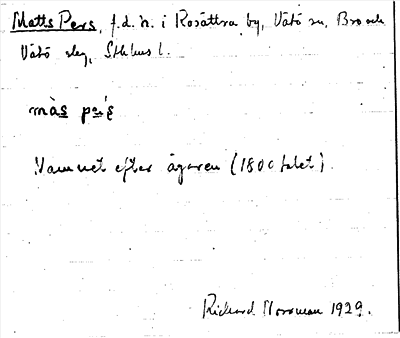 Matts Pers, f.d. h. i Rosättra by, Vätö sn, Bro och
Vätö slg, Sthlms l.
màs pæ's
Namnet efter ägaren (1800 talet).
Rickard Norrman 1929.